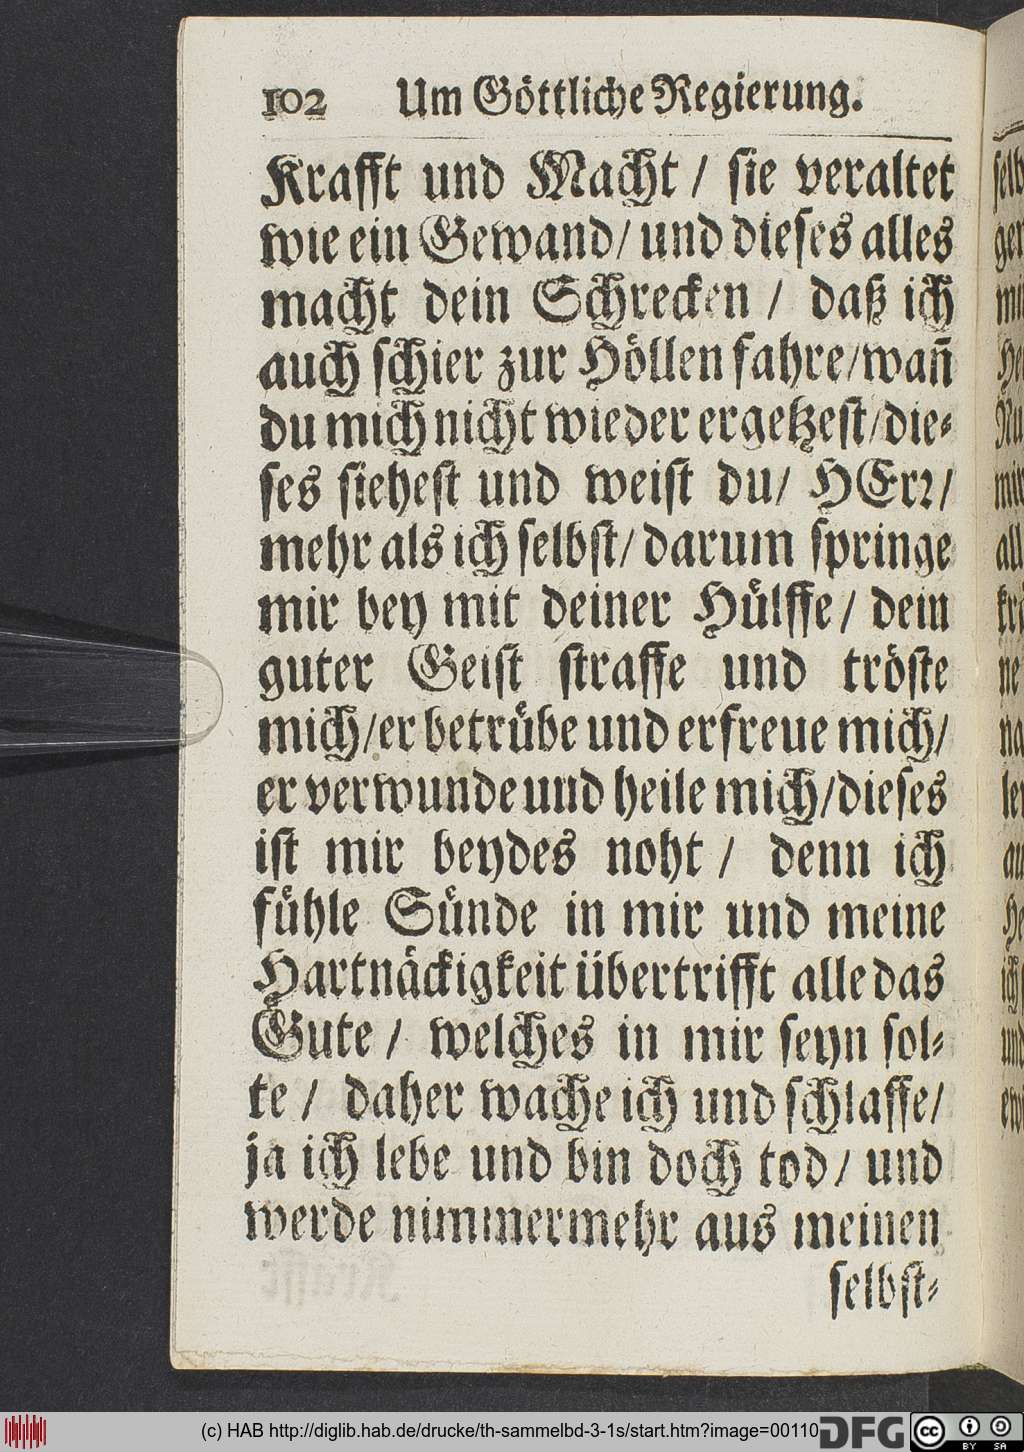 102 Um Göttliche Regierung.
Krafft und Macht / sie veraltet
wie ein Gewand / und dieses alles
macht dein Schrecken / daß ich
auch schier zur Höllen fahre / wañ
du mich nicht wieder ergetzest / die-
ses siehest und weist du / HErꝛ /
mehr als ich selbst / darum springe
mir bey mit deiner Hülffe / dein
guter Geist straffe und tröste
mich / er betrübe und erfreue mich /
er verwunde und heile mich / dieses
ist mir beydes noht / denn ich
fühle Sünde in mir und meine
Hartnäckigkeit übertrifft alle das
Gute / welches in mir seyn sol-
te / daher wache ich und schlaffe /
ja ich lebe und bin doch tod / und
werde nimmermehr aus meinen
selbst-
(c) HAB http://diglib.hab.de/drucke/th-sammelbd-3-1s/start.htm?image=00110
DFG
cc BY SA